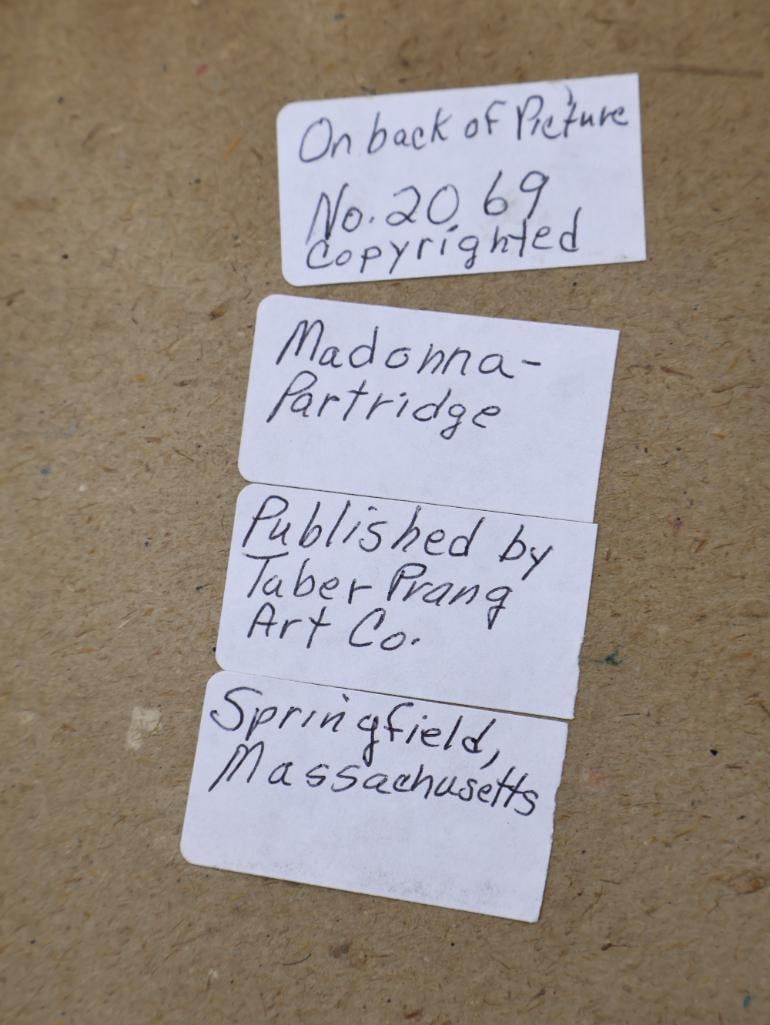 On back of Picture
No. 2069
Copyrighted
Madonna-
Partridge
Published by
Taber Prang
Art Co.
Springfield,
Massachusetts